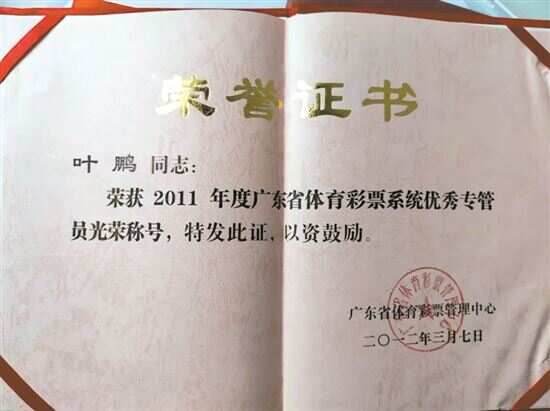 荣誉证书
叶鹏 同志：
荣获 2011 年度广东省体育彩票系统优秀专管
员光荣称号，特发此证，以资鼓励。
广东省体育彩票管理中心
广东省体育彩票管理中心
二〇一二年三月七日